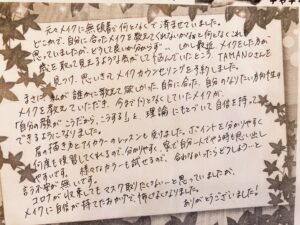 元々メイクに無頓着で何となくで済ませていました。
どこかで、自分に合ったメイクを教えてくれないかなと何となくこれ
思っていましたが、どうして良いか分からず… しかし最近メイクをした方が
歳を取って見えるような気がして悩んでいたところ、TAMANOさんを
見つけ、思いきってメイクカウンセリングを予約しました。
まさに私が誰かに教えて欲しかった自分に合った、自分のなりたい方向性の
メイクを教えていただき、今まで何となくしていたメイクが、
「自分の顔がこうだから、こうする」と理論にもとづいて自信を持って
できるようになりました。
眉の描き方とアイカラーのレッスンも受けました。ポイントを分かりやすく
何度も復習してくれるので、分かりやすく、家で自分でやる時も思い出し
やすいです。様々なカラーも試せるので、合わなかったらどうしようと
言う不安が無いです。
コロナが収束してもマスク取りたくないーと思っていましたが、
メイクに自信が持てたおかげで、怖くなくなりました。
ありがとうございました!